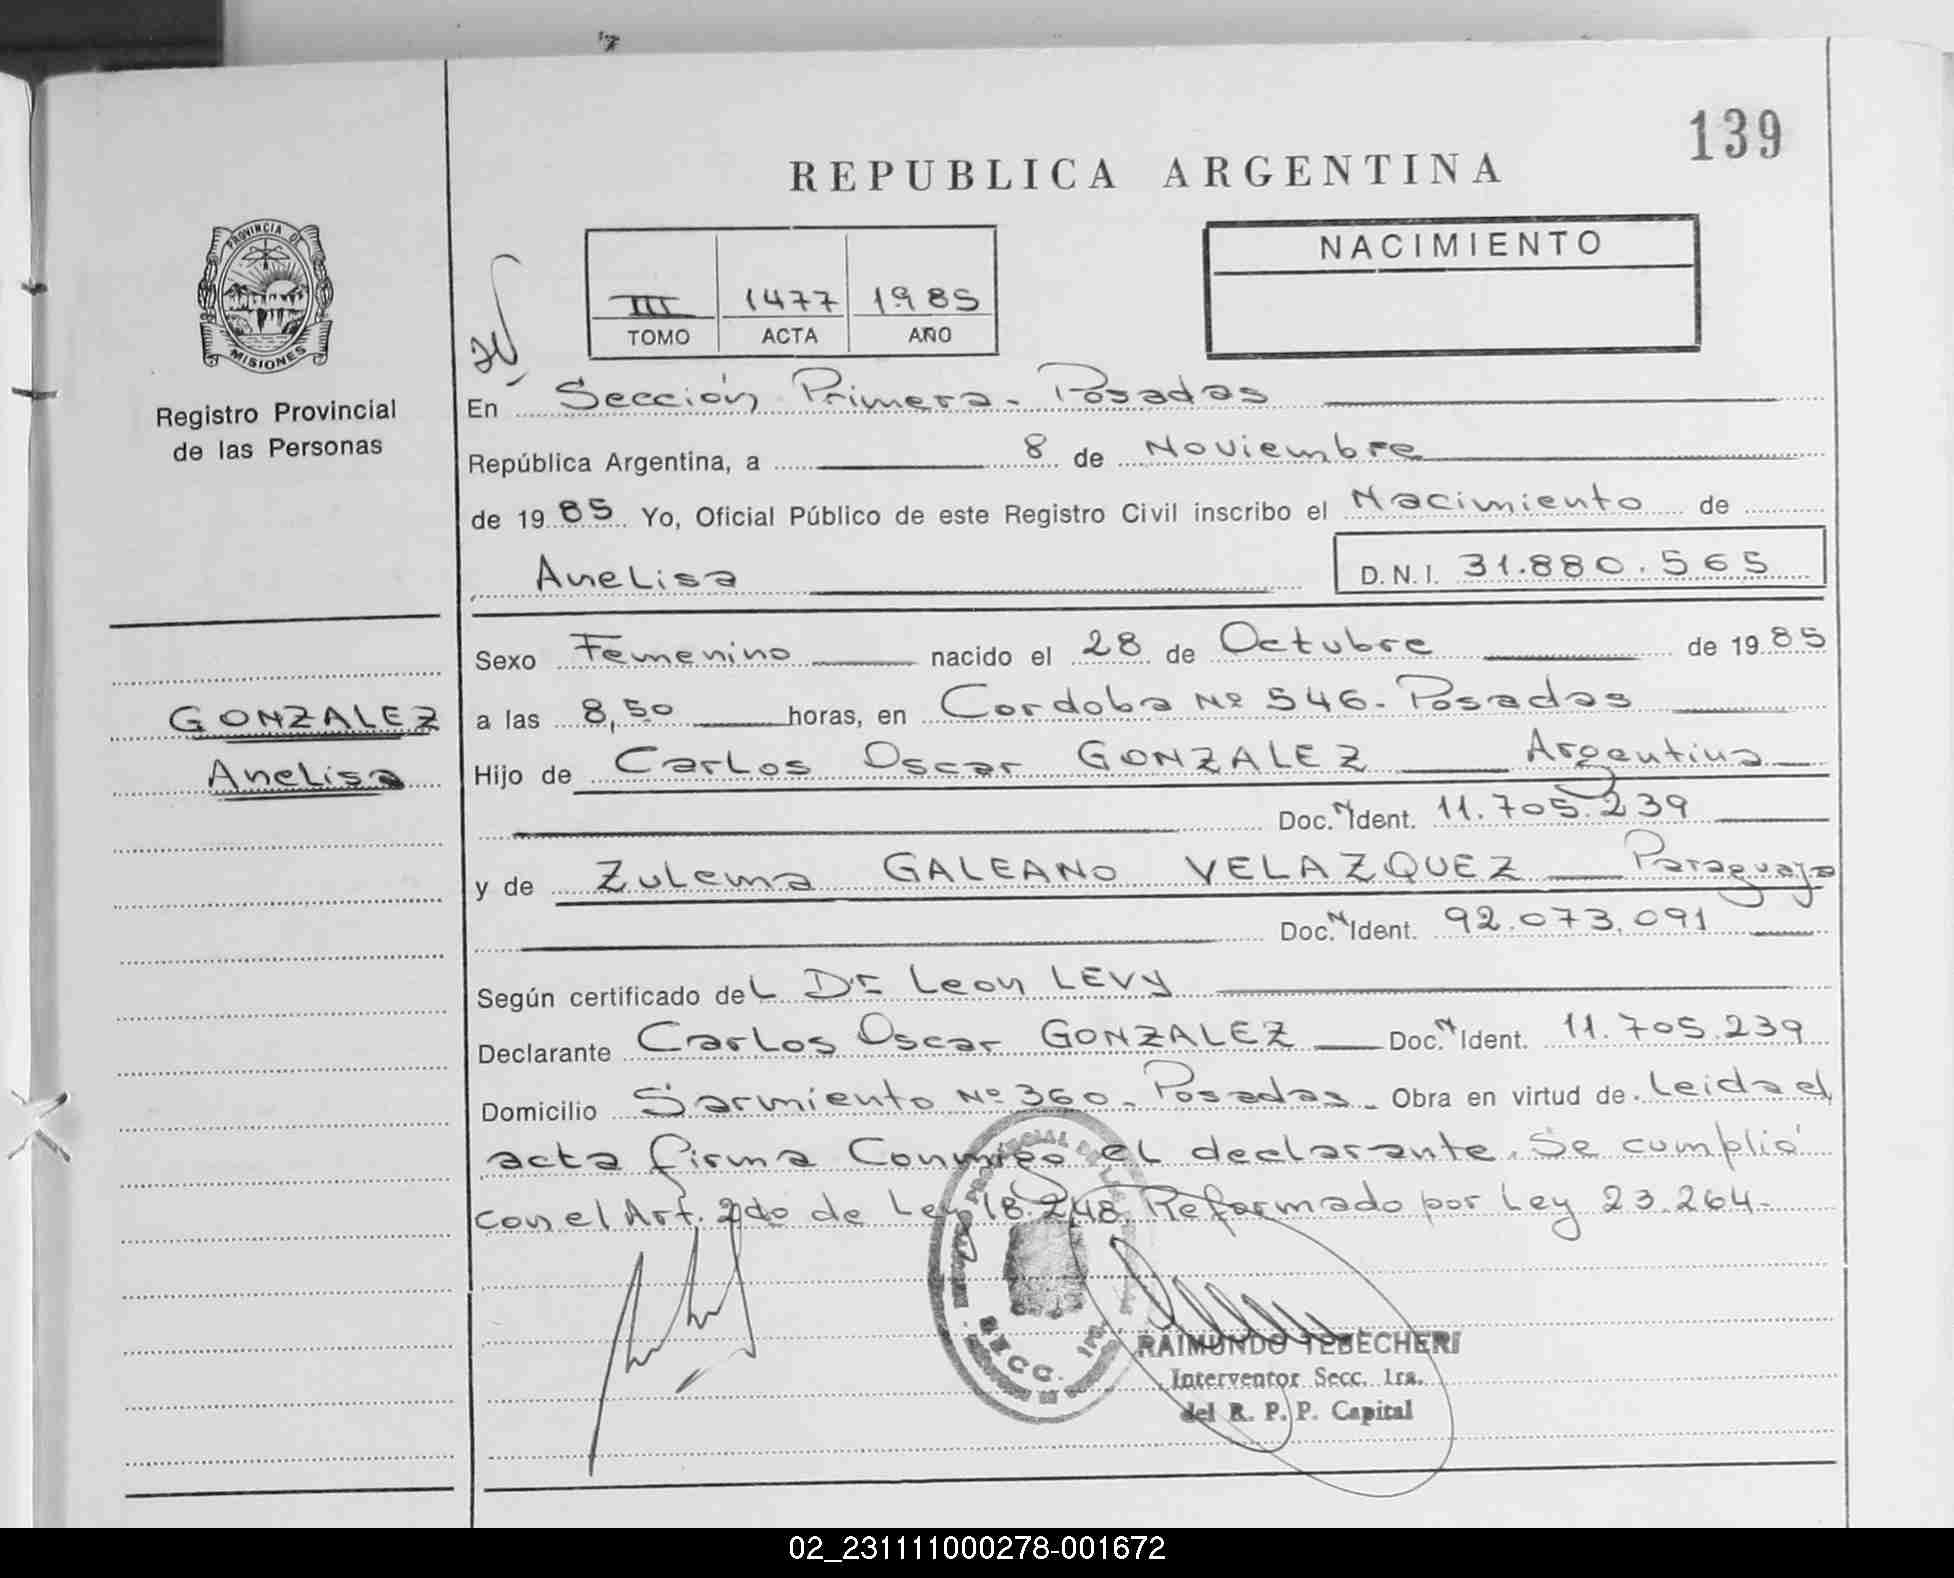 139
REPUBLICA ARGENTINA
PROVINCIA DE
MISIONES
Registro Provincial
de las Personas
III 1477 1985
TOMO ACTA AÑO
NACIMIENTO
En Sección Primera - Posadas
República Argentina, a 8 de Noviembre
de 1985 Yo, Oficial Público de este Registro Civil inscribo el Nacimiento de
Anelisa D.N.I. 31.880.565
Sexo Femenino nacido el 28 de Octubre de 1985
GONZALEZ
Anelisa
a las 8,50 horas, en Cordoba Nº 546. Posadas
Hijo de Carlos Oscar GONZALEZ Argentina
Doc. N Ident. 11.705.239
y de Zulema GALEANO VELAZQUEZ Paraguaya
Doc. N Ident. 92.073.091
Según certificado del Dr Leon LEVY
Declarante Carlos Oscar GONZALEZ Doc. N Ident. 11.705.239
Domicilio Sarmiento Nº 360 - Posadas - Obra en virtud de leida el
acta firma Conmigo el declarante. Se cumplió
con el Art. 2do de Ley 18.248. Reformado por Ley 23.264-
SECC. 1ra.
RAIMUNDO TEBECHERI
Interventor Secc. 1ra.
del R. P. P. Capital
02_231111000278-001672